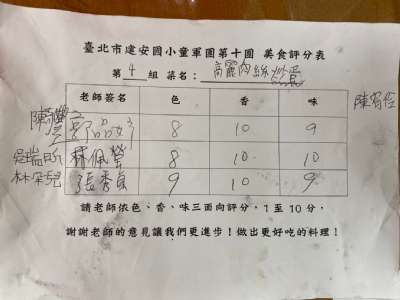 臺北市建安國小童軍團第十團 美食評分表
第 4 組 菜名: 高麗肉絲
老師簽名 色 香 味
陳宥
8 10 9
林佩瑩 8 10 10
林 張秀貞 9 10 9
請老師依色、香、味三面向評分,1 至 10 分,
謝謝老師的意見讓我們更進步!做出更好吃的料理!